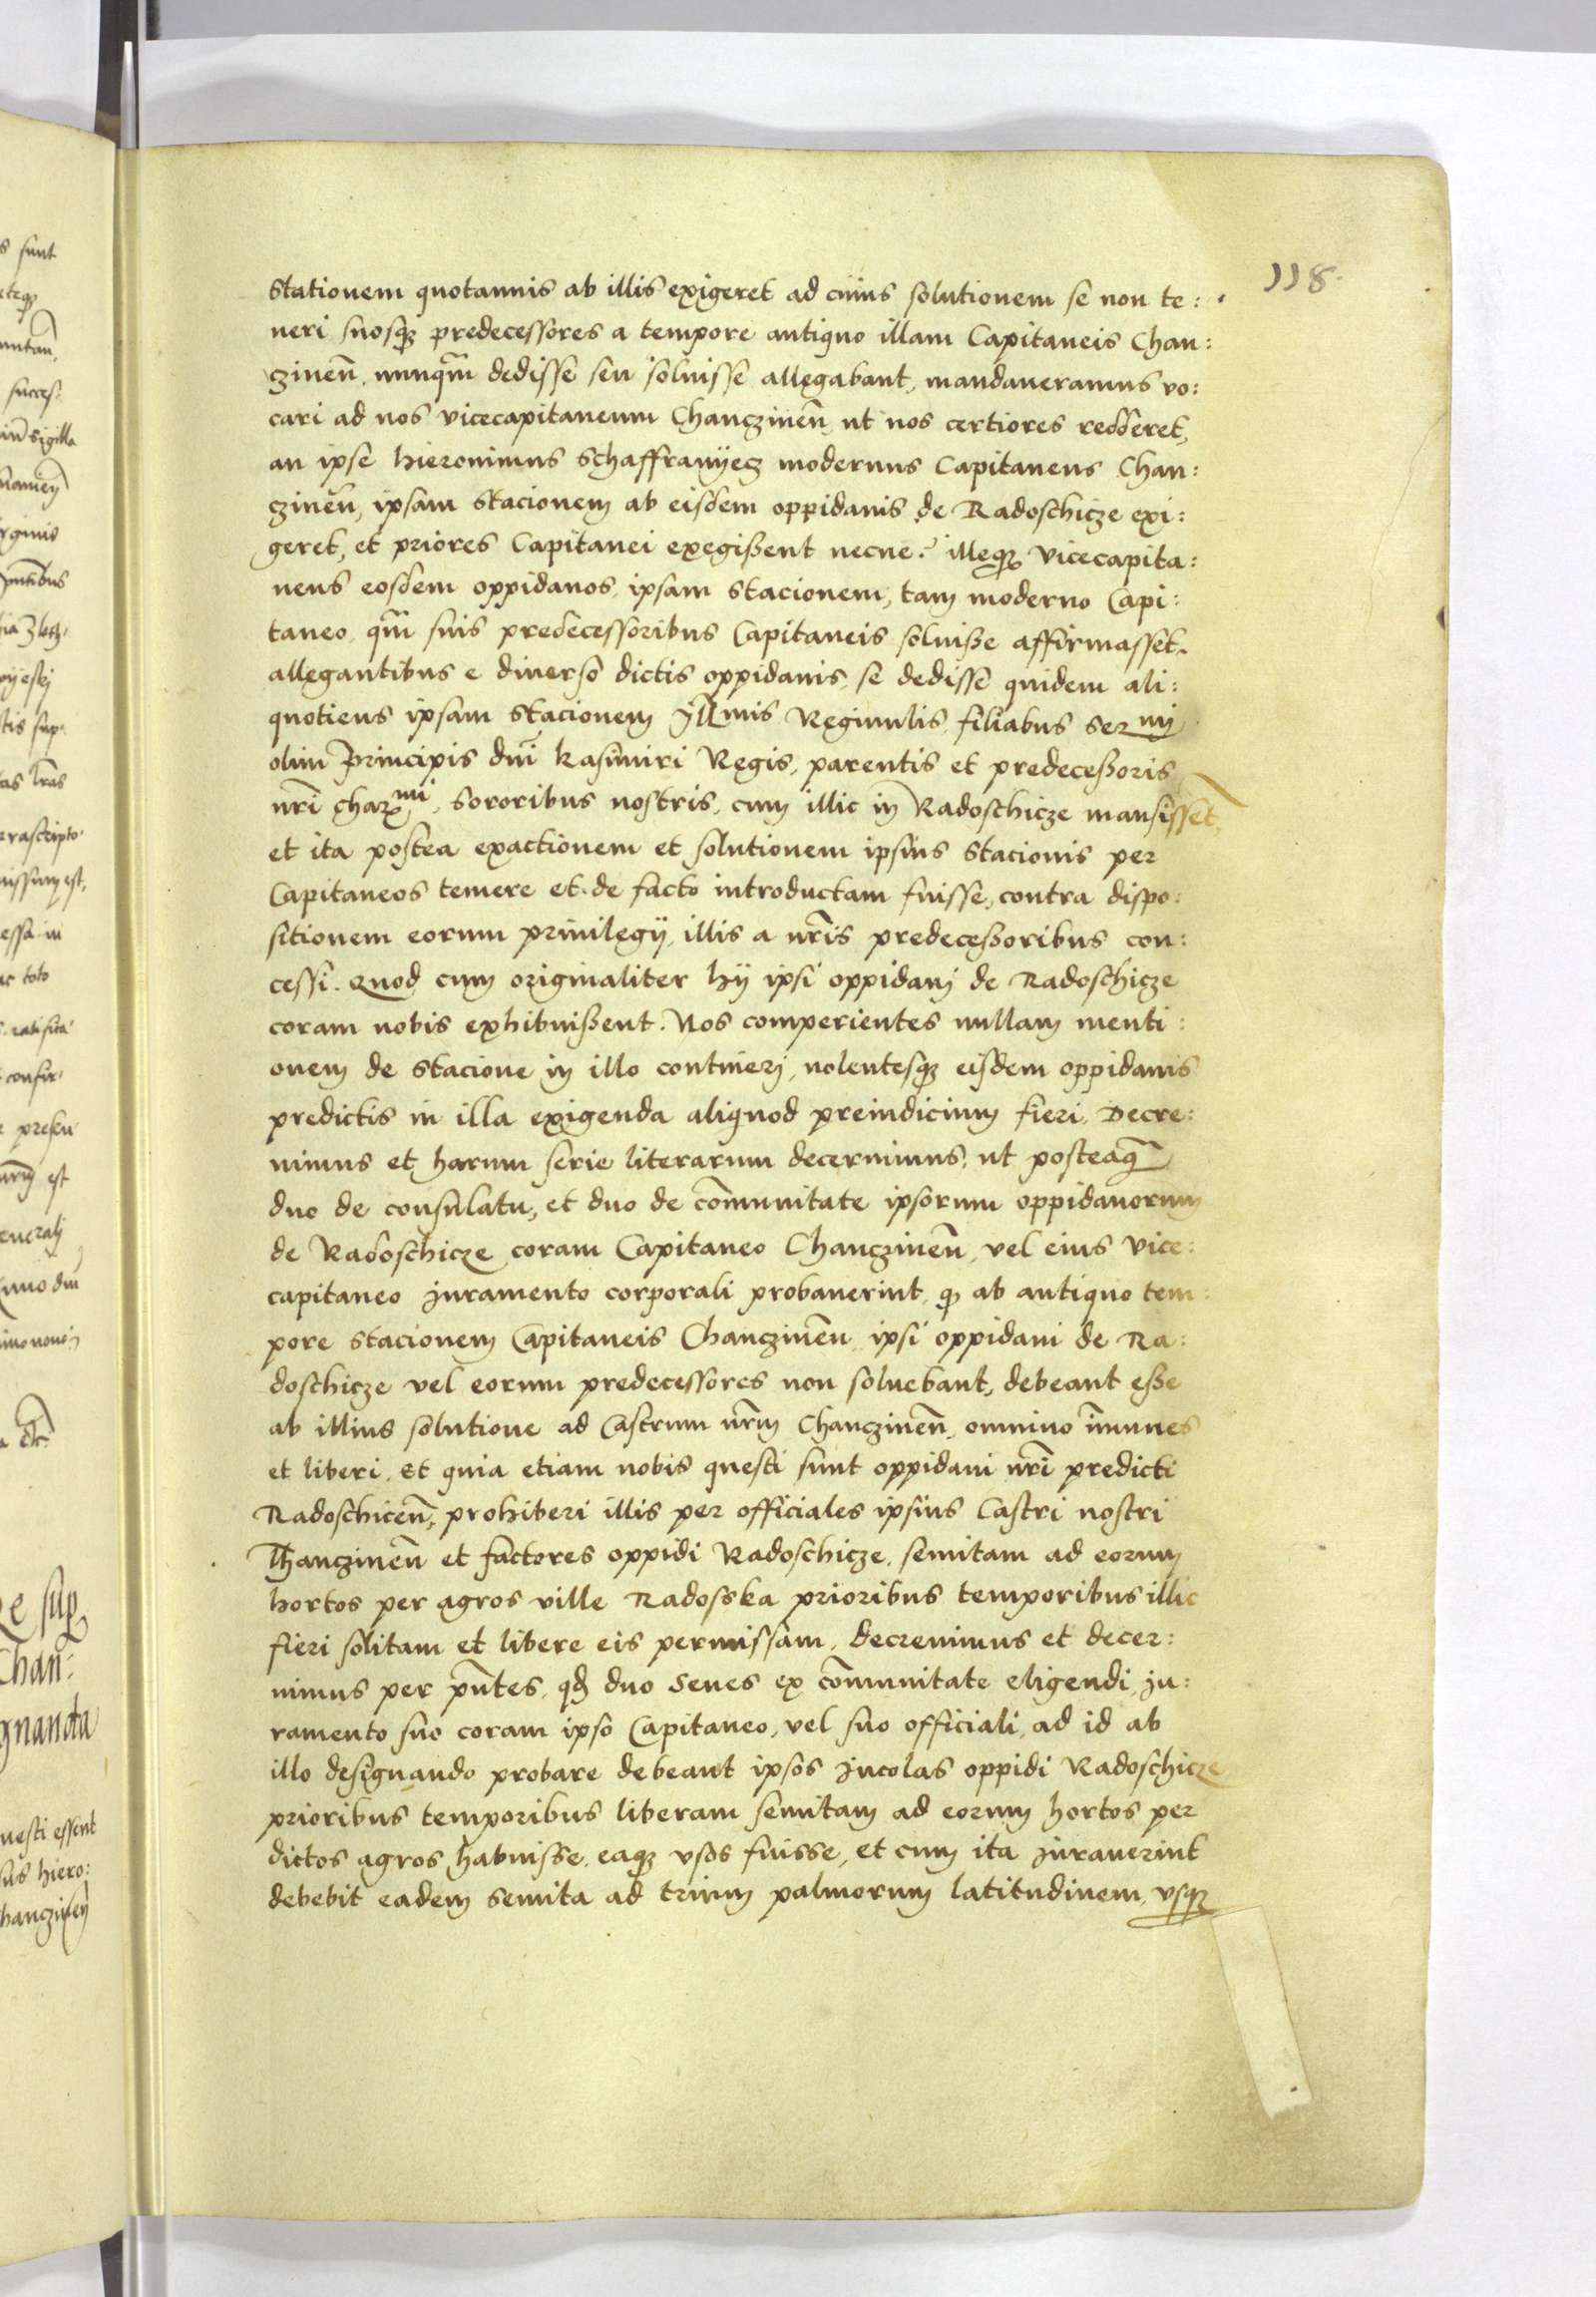 118.
stationem quotannis ab illis exigeret ad cuius solutionem se non te:
neri suosq predecessores a tempore antiquo illam Capitaneis Chan:
czinen̄. nunqm̄ dedisse seu soluisse allegabant, mandaueramus vo:
cari ad nos vicecapitaneum Chanczinen̄, ut nos certiores redderet,
an ipse hieronimus schaffranÿecz modernus Capitaneus Chan:
czinen̄, ipsam stacionem ab eisdem oppidanis de Radoschicze exi:
geret, et priores Capitanei exegißent necne? illeq vicecapita:
neus eosdem oppidanos, ipsam stacionem, tam moderno Capi:
taneo, qm̄ suis predecessoribus Capitaneis soluiße affirmasset.
allegantibus e diuerso dictis oppidanis, se dedisse quidem ali:
quotiens ipsam stacionem Illmis Reginulis, filiabus Sermi
olim Principis dnī kasimiri Regis, parentis et predeceßoris
nrī charmi, sororibus nostris, cum illic in Radoschicze mansissent,
et ita postea exactionem et solutionem ipsius stacionis per
Capitaneos temere et de facto introductam fuisse, contra dispo:
sitionem eorum priuilegÿ, illis a nrīs predeceßoribus con:
cessi. Quod cum originaliter hÿ ipsi oppidani de Radoschicze
coram nobis exhibuißent. Nos comperientes nullam menti:
onem de stacione in illo contineri, nolentesq eisdem oppidanis
predictis in illa exigenda aliquod preiudicium fieri. Decre:
uimus et harum serie literarum decernimus, ut posteaq̄
duo de consulatu, et duo de com̄unitate ipsorum oppidanorum
de Radoschicze coram Capitaneo Chanczinen̄, vel eius vice:
capitaneo Iuramento corporali probauerint, q ab antiquo tem:
pore stacionem Capitaneis Chanczinen̄ ipsi oppidani de Ra:
doschicze vel eorum predecessores non soluebant, debeant eße
ab illius solutione ad Castrum nrm̄ Chanczinen̄, omnino im̄unes
et liberi. Et quia etiam nobis questi sunt oppidani nrī predicti
Radoschicen̄, prohiberi illis per officiales ipsius Castri nostri
Chanczinen̄ et factores oppidi Radoschicze, semitam ad eorum
hortos per agros ville Radosska prioribus temporibus illic
fieri solitam et libere eis permissam, decreuimus et decer:
nimus per pn̄tes, qd duo Senes ex com̄unitate eligendi, iu:
ramento suo coram ipso Capitaneo, vel suo officiali, ad id ab
illo designando probare debeant ipsos Incolas oppidi Radoschicze
prioribus temporibus liberam semitam ad eorum hortos per
dictos agros habuisse, eaq usos fuisse, et cum ita Iurauerint
debebit eadem semita ad trium palmorum latitudinem, usq